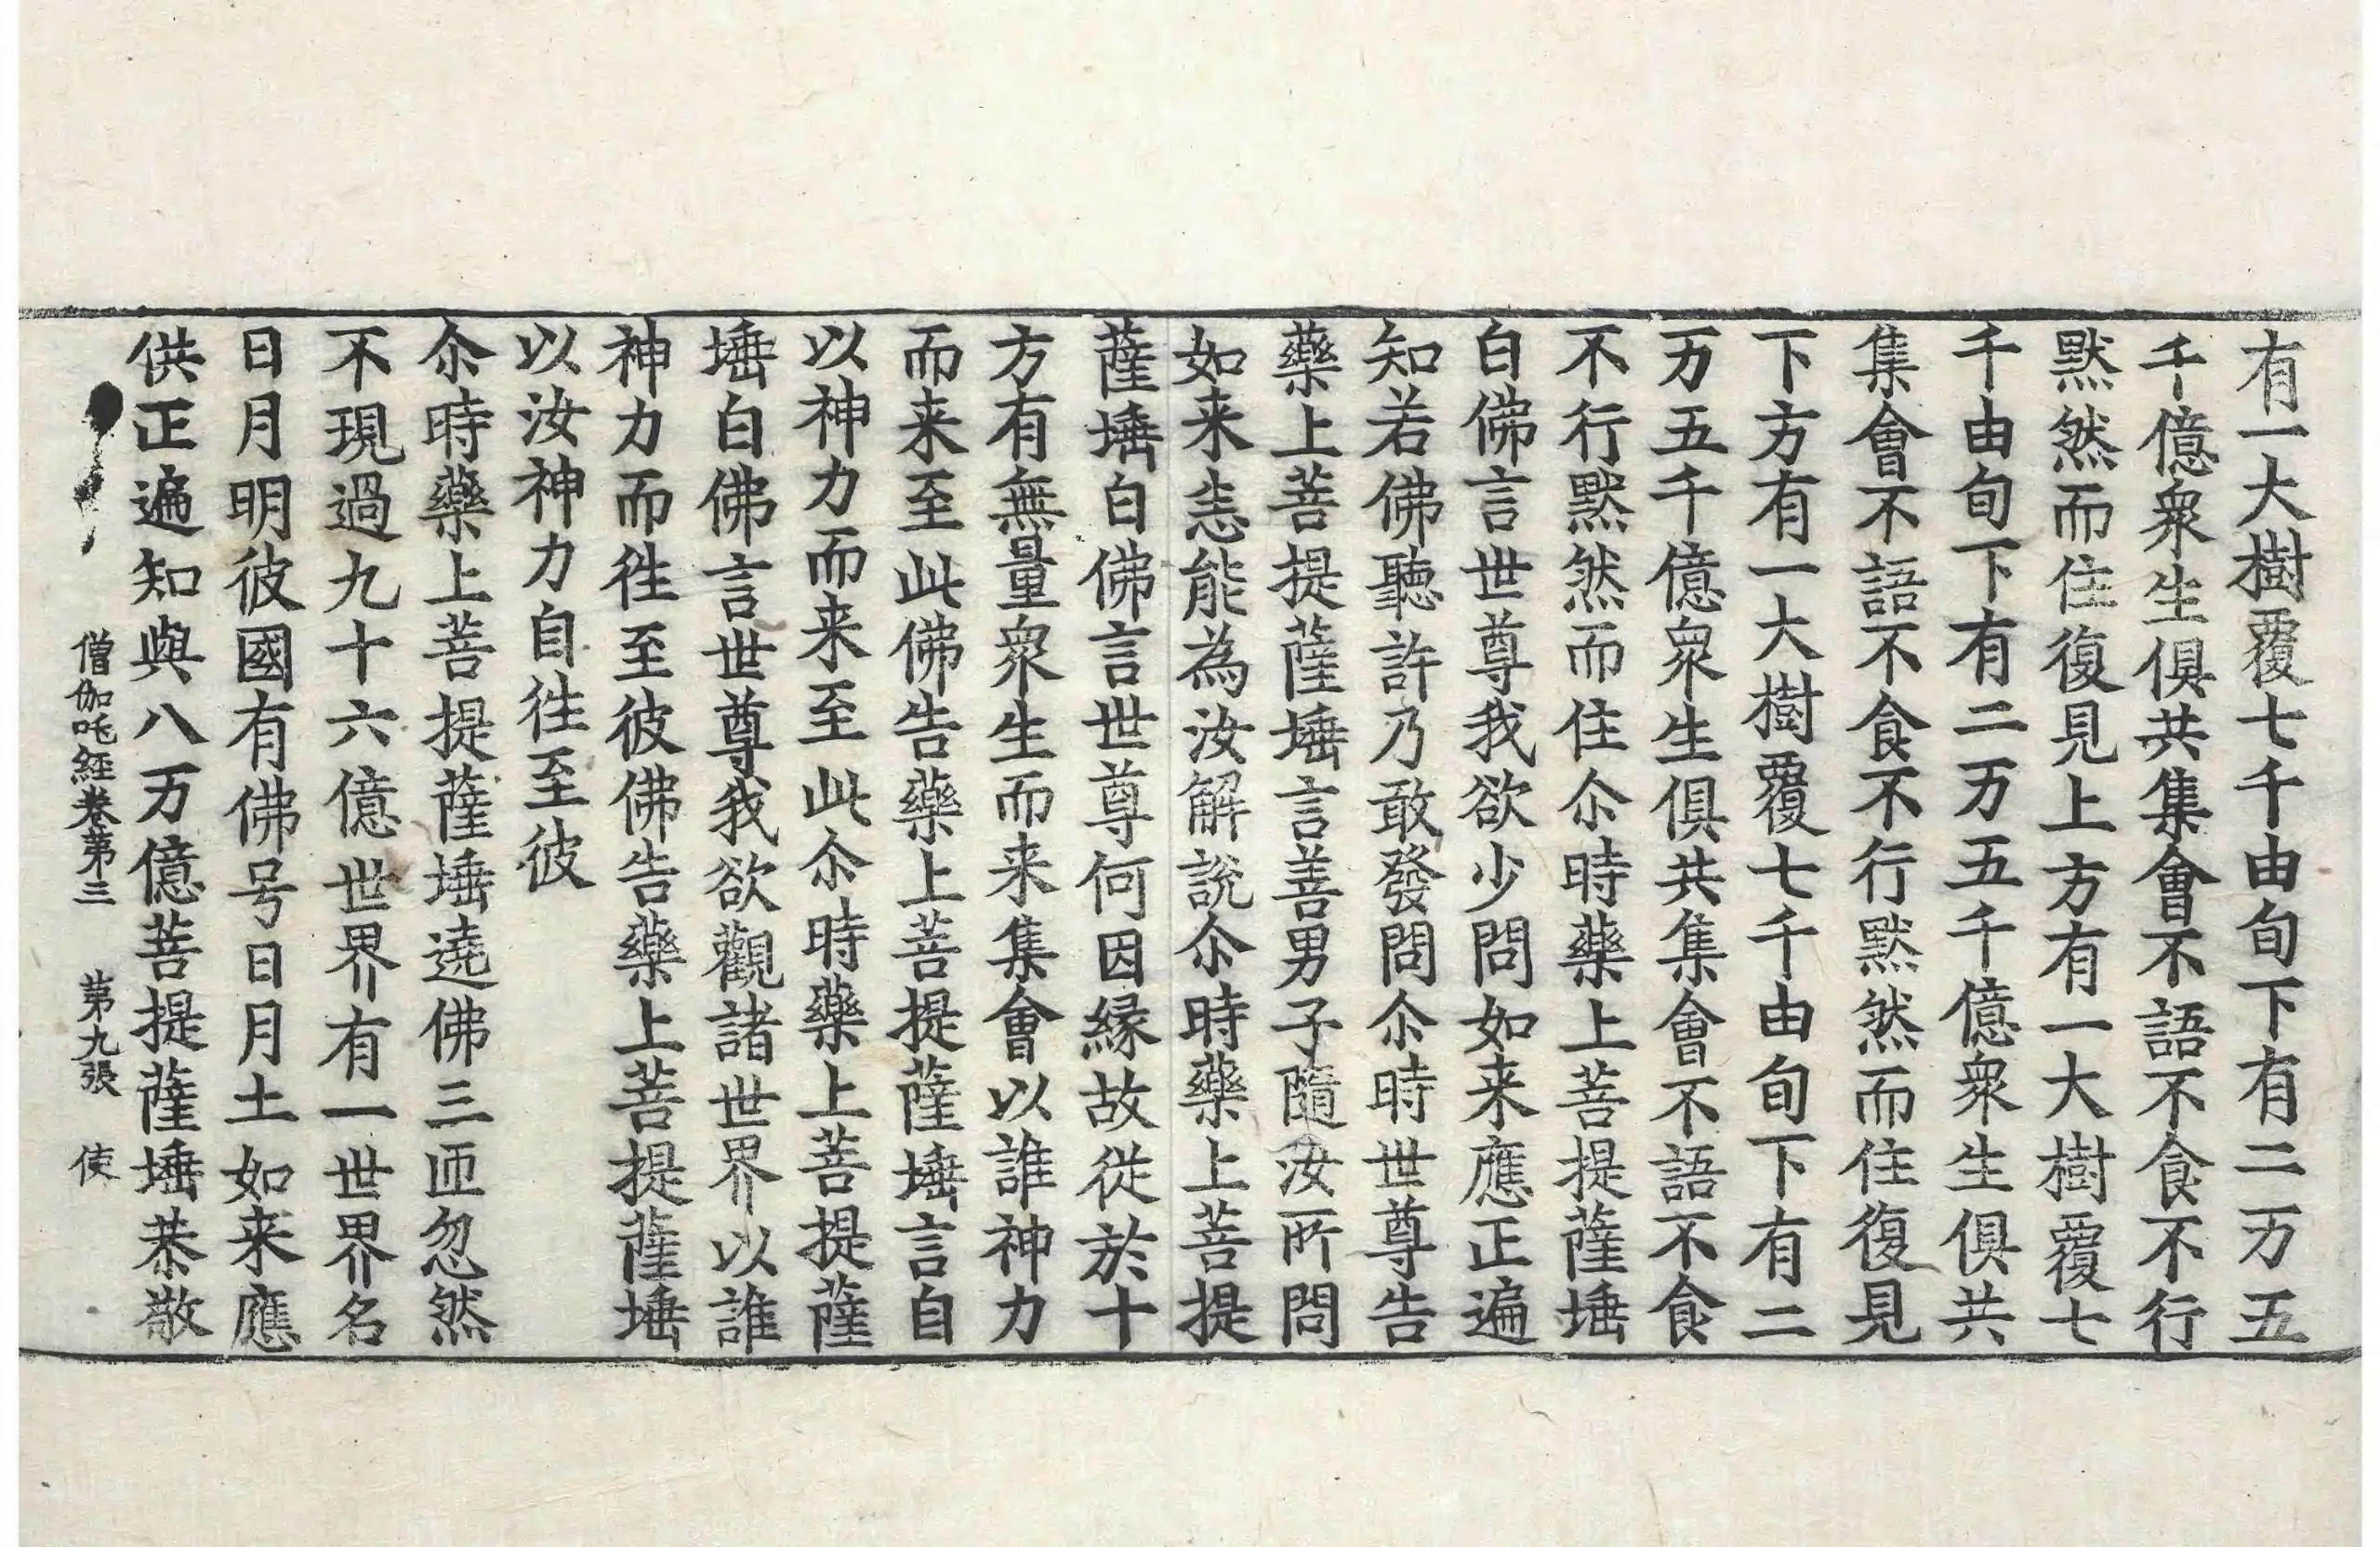 有一大樹覆七千由旬下有二万五
千億衆生俱共集會不語不食不行
默然而住復見上方有一大樹覆七
千由旬下有二万五千億衆生俱共
集會不語不食不行默然而住復見
下方有一大樹覆七千由旬下有二
万五千億衆生俱共集會不語不食
不行默然而住尒時藥上菩提薩埵
白佛言世尊我欲少問如来應正遍
知若佛聽許乃敢發問尒時世尊告
藥上菩提薩埵言善男子隨汝所問
如来恣能為汝解說尒時藥上菩提
薩埵白佛言世尊何因縁故從於十
方有無量衆生而来集會以誰神力
而来至此佛告藥上菩提薩埵言自
以神力而来至此尒時藥上菩提薩
埵白佛言世尊我欲觀諸世界以誰
神力而徃至彼佛告藥上菩提薩埵
以汝神力自徃至彼
尒時藥上菩提薩埵遶佛三匝忽然
不現過九十六億世界有一世界名
日月明彼國有佛号日月土如来應
供正遍知與八万億菩提薩埵恭敬
僧伽吒經卷第三 第九張 使